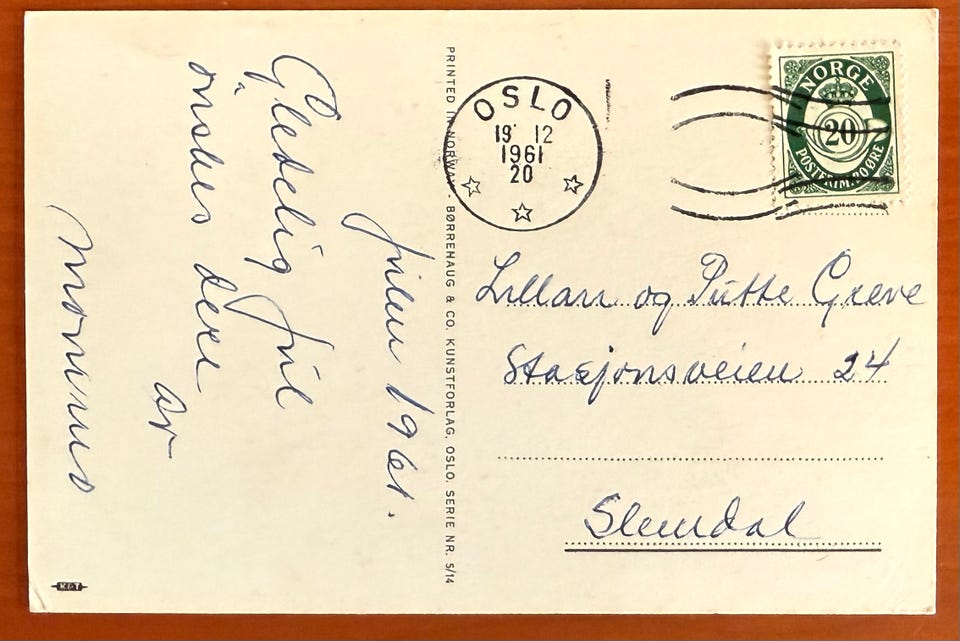 Julen 1961.
Gledelig Jul
ønskes dere
av
Mommus
PRINTED IN NORWAY - BØRREHAUG & CO. KUNSTFORLAG, OSLO. SERIE NR. 5/14
OSLO
19 12
1961
20
NORGE
20
POSTFRIM. 20 ØRE
Lillan og Putte Greve
Stasjonsveien 24
Slemdal
K&T